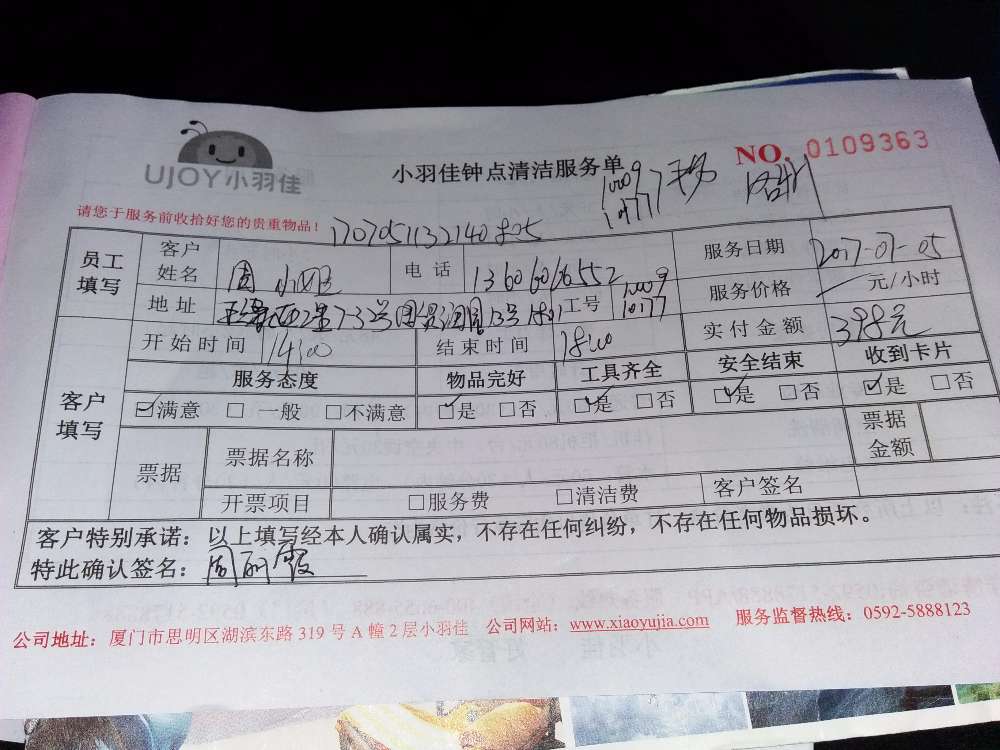 UJOY小羽佳
小羽佳钟点清洁服务单
NO. 0109363
10009
10177
请您于服务前收拾好您的贵重物品!
员工填写
客户姓名 周小姐 电话 13606016552 服务日期 2017-07-05
地址 13号1801 工号 10009 10177 服务价格 元/小时
开始时间 14:00 结束时间 18:00 实付金额 398元
客户填写
服务态度 物品完好 工具齐全 安全结束 收到卡片
☑满意 □一般 □不满意 ☑是 □否 ☑是 □否 ☑是 □否 ☑是 □否
票据 票据名称 票据金额
开票项目 □服务费 □清洁费 客户签名
客户特别承诺:以上填写经本人确认属实,不存在任何纠纷,不存在任何物品损坏。
特此确认签名:周丽霞
公司地址:厦门市思明区湖滨东路319号A幢2层小羽佳 公司网站:www.xiaoyujia.com 服务监督热线:0592-5888123